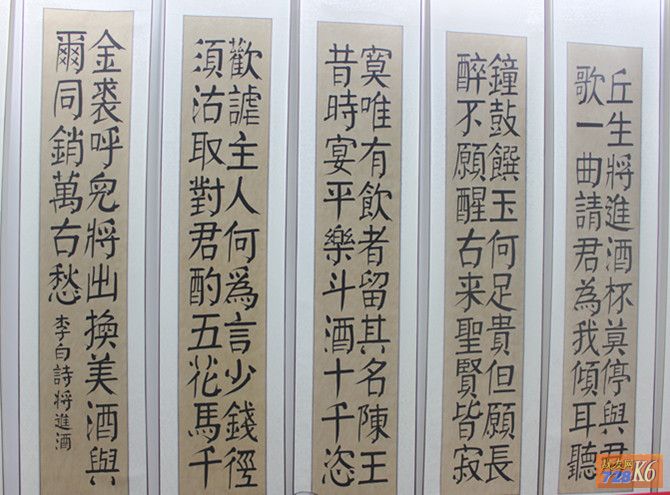 丘生將進酒杯莫停與君
歌一曲請君為我傾耳聽
鐘鼓饌玉何足貴但願長
醉不願醒古来聖賢皆寂
寞唯有飲者留其名陳王
昔時宴平樂斗酒十千恣
歡謔主人何爲言少錢徑
須沽取對君酌五花馬千
金裘呼兒將出換美酒與
爾同銷萬古愁
李白詩将進酒
728 K6